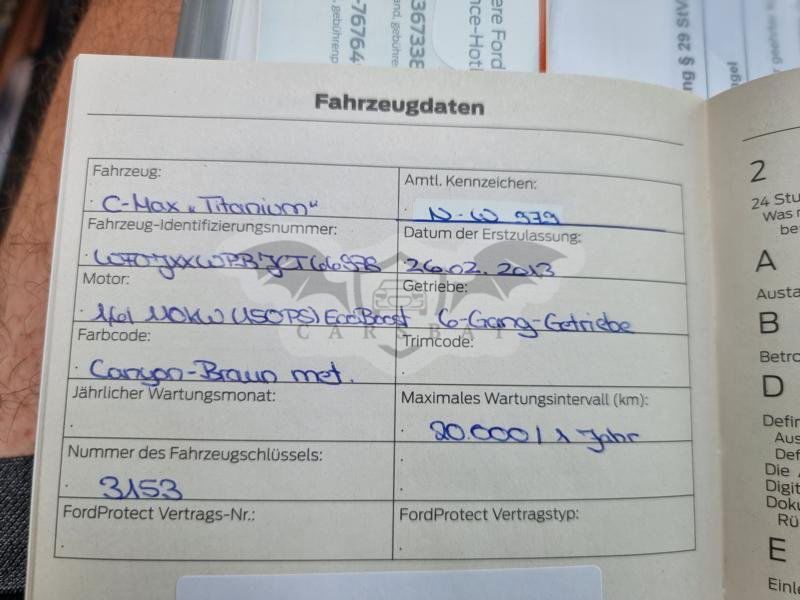 ere Ford
nce-Hotl
367338
-76764
and, gebühren
, gebührenp
ng § 29 StV
ngel
Fahrzeugdaten
Fahrzeug:
C-Max „Titanium"
Amtl. Kennzeichen:
N-W 979
Fahrzeug-Identifizierungsnummer:
WF0JXXWPBJCT66978
Datum der Erstzulassung:
26.02.2013
Motor:
1,6l 110KW (150PS) EcoBoost
Getriebe:
6-Gang-Getriebe
CAROBAT
Farbcode:
Canyon-Braun met.
Trimcode:
Jährlicher Wartungsmonat:
Maximales Wartungsintervall (km):
20.000 / 1 Jahr
Nummer des Fahrzeugschlüssels:
3153
FordProtect Vertrags-Nr.:
FordProtect Vertragstyp:
2
24 Stu
Was n
be
A
Austa
B
Betro
D
Defin
Aus
Def
Die
Digit
Doku
Rü
E
Einle